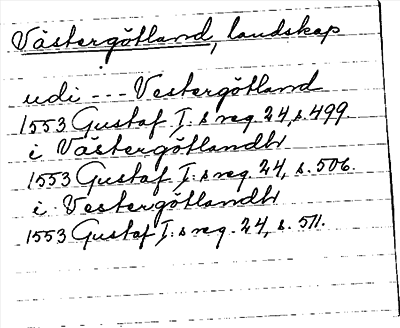 Västergötland, landskap
udi --- Vestergötland
1553 Gustaf I:s reg 24, s. 499.
i Västergötlandh
1553 Gustaf I:s reg 24, s. 506.
i Vestergötlandh
1553 Gustaf I:s reg. 24, s. 511.